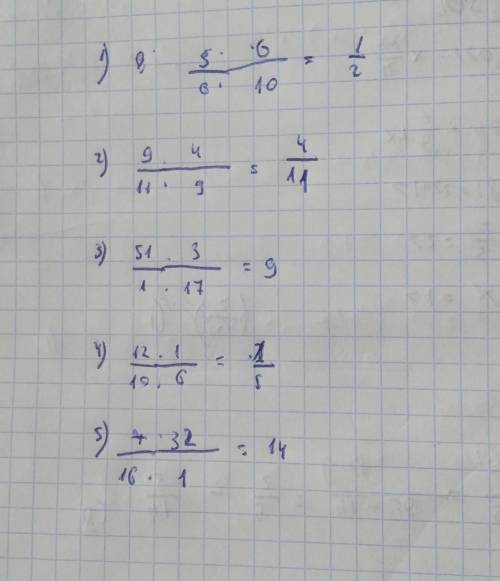 1) 5 · 6 / 6 · 10 = 1/2
2) 9 · 4 / 11 · 9 = 4/11
3) 51 · 3 / 1 · 17 = 9
4) 12 · 1 / 10 · 6 = 1/5
5) 7 · 32 / 16 · 1 = 14